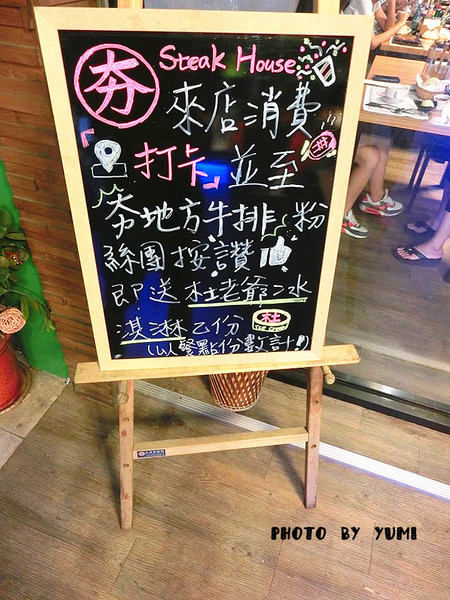 夯 Steak House
來店消費
「打卡」並至
夯地方牛排 粉
絲團按讚
即送杜老爺冰
淇淋乙份 杜
Ice Cream
(以餐點份數計!)
PHOTO BY YUMI